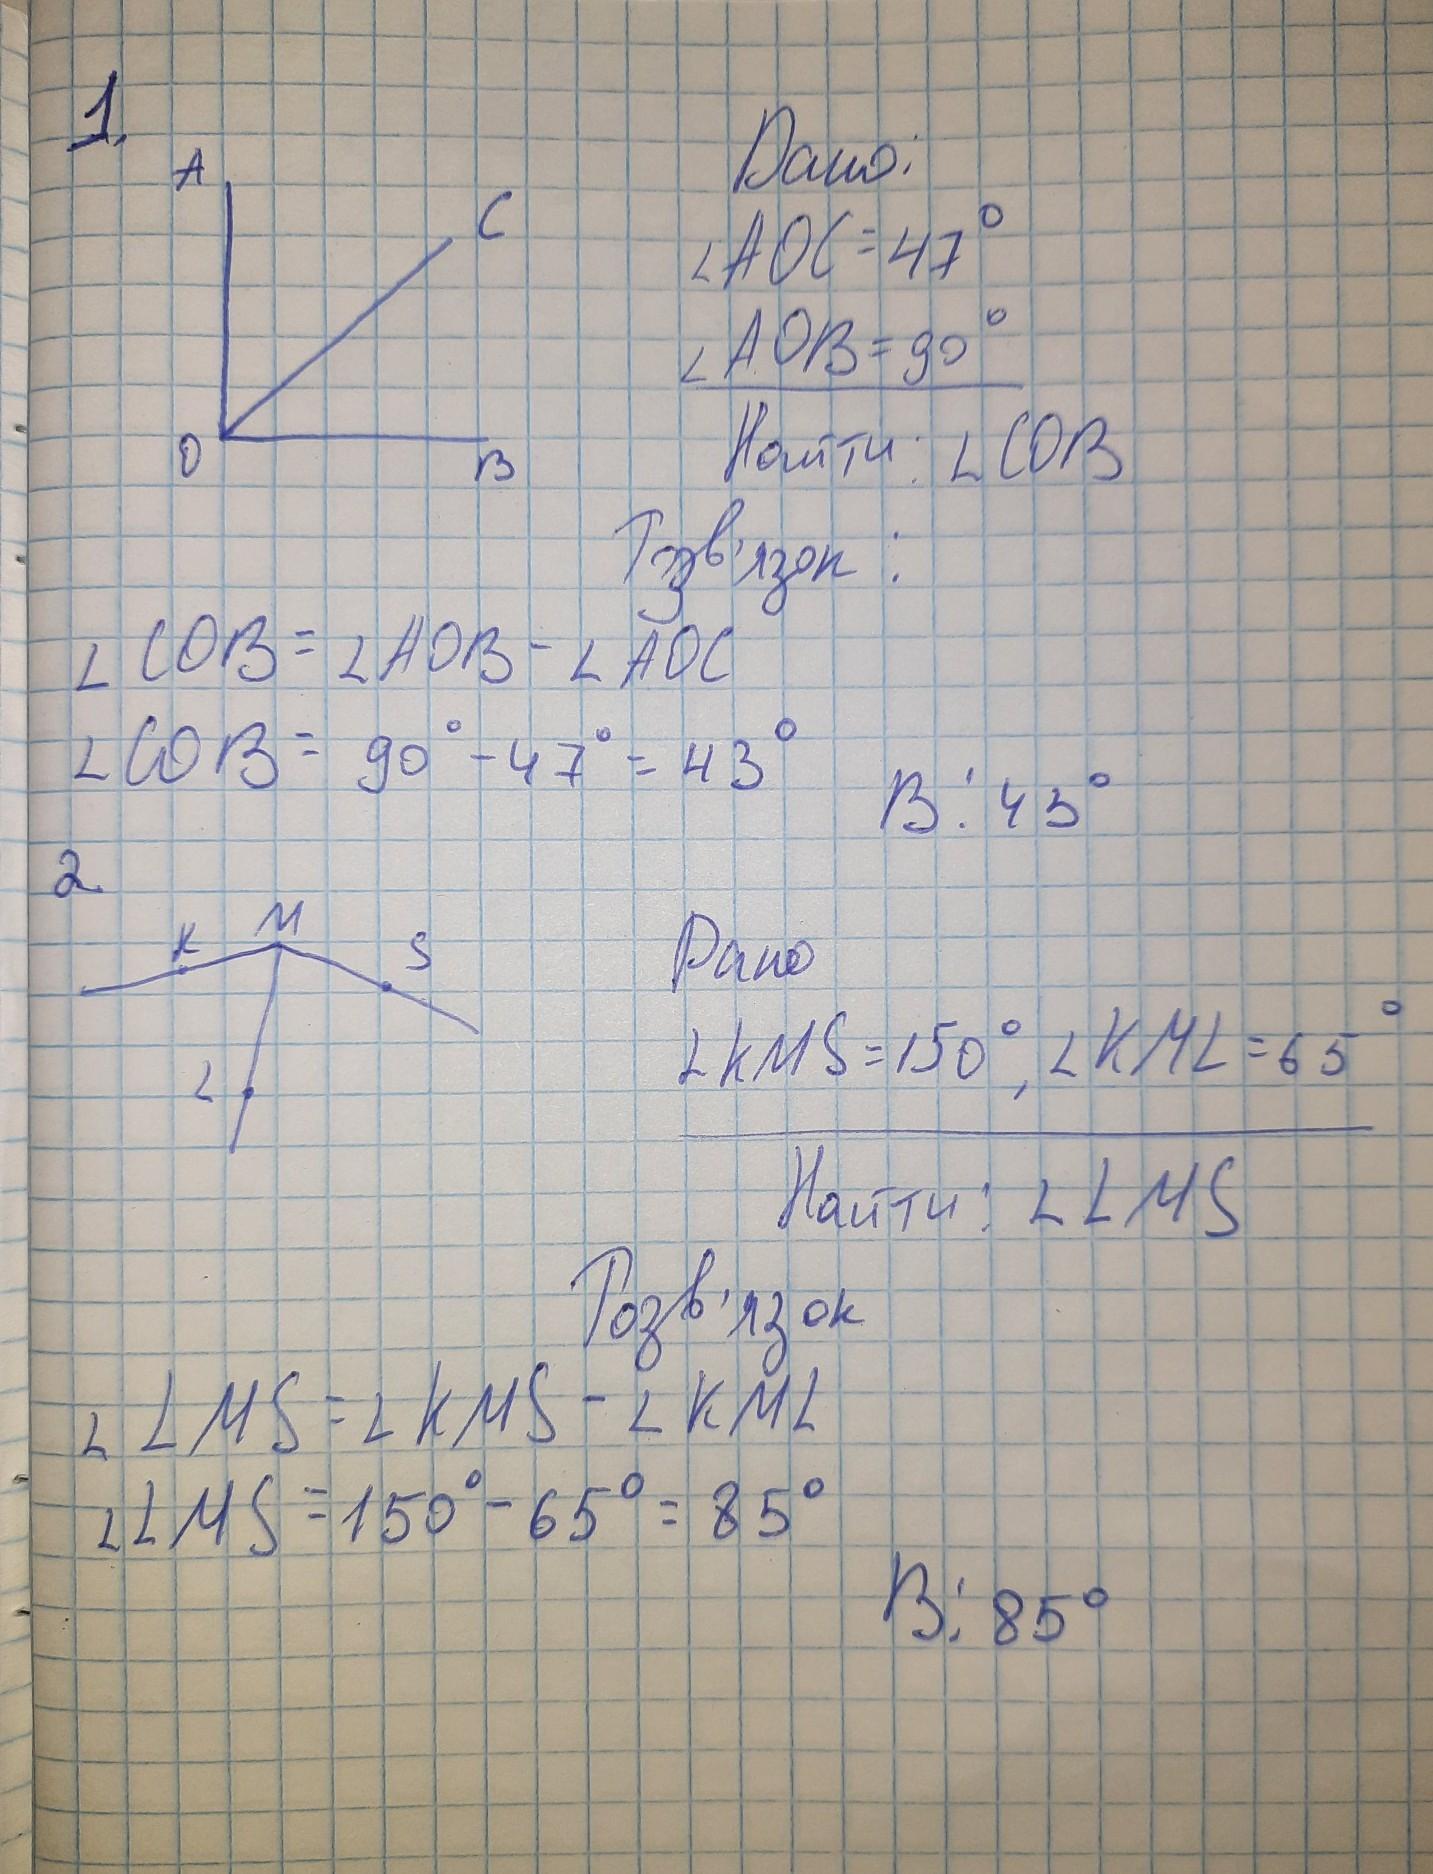 1.
A
C
O
B
Дано:
∠AOC=47°
∠AOB=90°
Найти: ∠COB
Розв'язок:
∠COB=∠AOB-∠AOC
∠COB=90°-47°=43°
В: 43°
2
K
M
S
L
Дано
∠KMS=150°, ∠KML=65°
Найти: ∠LMS
Розв'язок
∠LMS=∠KMS-∠KML
∠LMS=150°-65°=85°
В: 85°